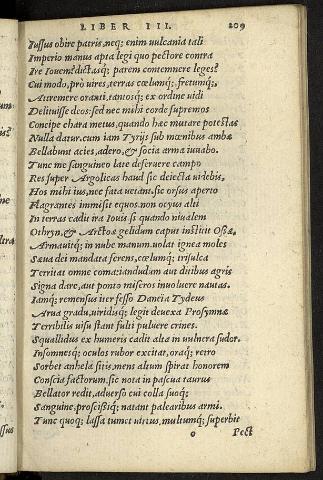 LIBER III. 209
Iussus obire patris, neq; enim uulcania tali
Imperio manus apta legi quo pectore contra
Ire Iouem? dictasq; parem contemnere leges?
Cui modo, pro uires, terras cœlumq;, fretumq;,
Attremere oranti, tantosq; ex ordine uidi
Delituisse deos: sed nec mihi corde supremos
Concipe chara metus, quando hæc mutare potestas
Nulla datur. cum iam Tyrijs sub mœnibus ambæ
Bellabunt acies, adero, & socia arma iuuabo.
Tunc me sanguineo late deseruere campo
Res super Argolicas haud sic deiecta uidebis,
Hos mihi ius, nec fata uetant. sic orsus aperto
Flagrantes immisit equos. non ocyus alti
In terras cadit ira Iouis si quando niualem
Othryn, & Arctoæ gelidum caput institit Ossæ,
Armauitq; in nube manum. uolat ignea moles
Sæua dei mandata ferens, cœlumq; trisulca
Territat omne coma: iandudum aut ditibus agris
Signa dare, aut ponto miseros inuoluere nautas.
Iamq; remensus iter fesso Daneia Tydeus
Arua gradu, uiridisq; legit deuexa Prosymnæ
Terribilis uisu stant fulti puluere crines.
Squallidus ex humeris cadit alta in uulnera sudor.
Insomnesq; oculos rubor excitat, oraq; retro
Sorbet anhela sitis, mens altum spirat honorem
Conscia factorum. sic nota in pascua taurus
Bellator redit, aduerso cui colla suoq;
Sanguine, proscissisq; natant palearibus armi.
Tunc quoq; lassa tumet uirtus, multumq; superbit
o Pect